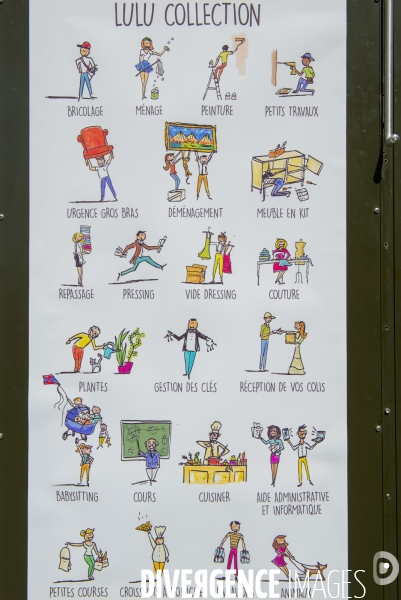 LULU COLLECTION
BRICOLAGE
MÉNAGE
PEINTURE
PETITS TRAVAUX
URGENCE GROS BRAS
DÉMÉNAGEMENT
MEUBLE EN KIT
REPASSAGE
PRESSING
VIDE DRESSING
COUTURE
PLANTES
GESTION DES CLÉS
RÉCEPTION DE VOS COLIS
BABYSITTING
COURS
CUISINER
AIDE ADMINISTRATIVE
ET INFORMATIQUE
PETITES COURSES
ANIMAUX
DIVERGENCE IMAGES